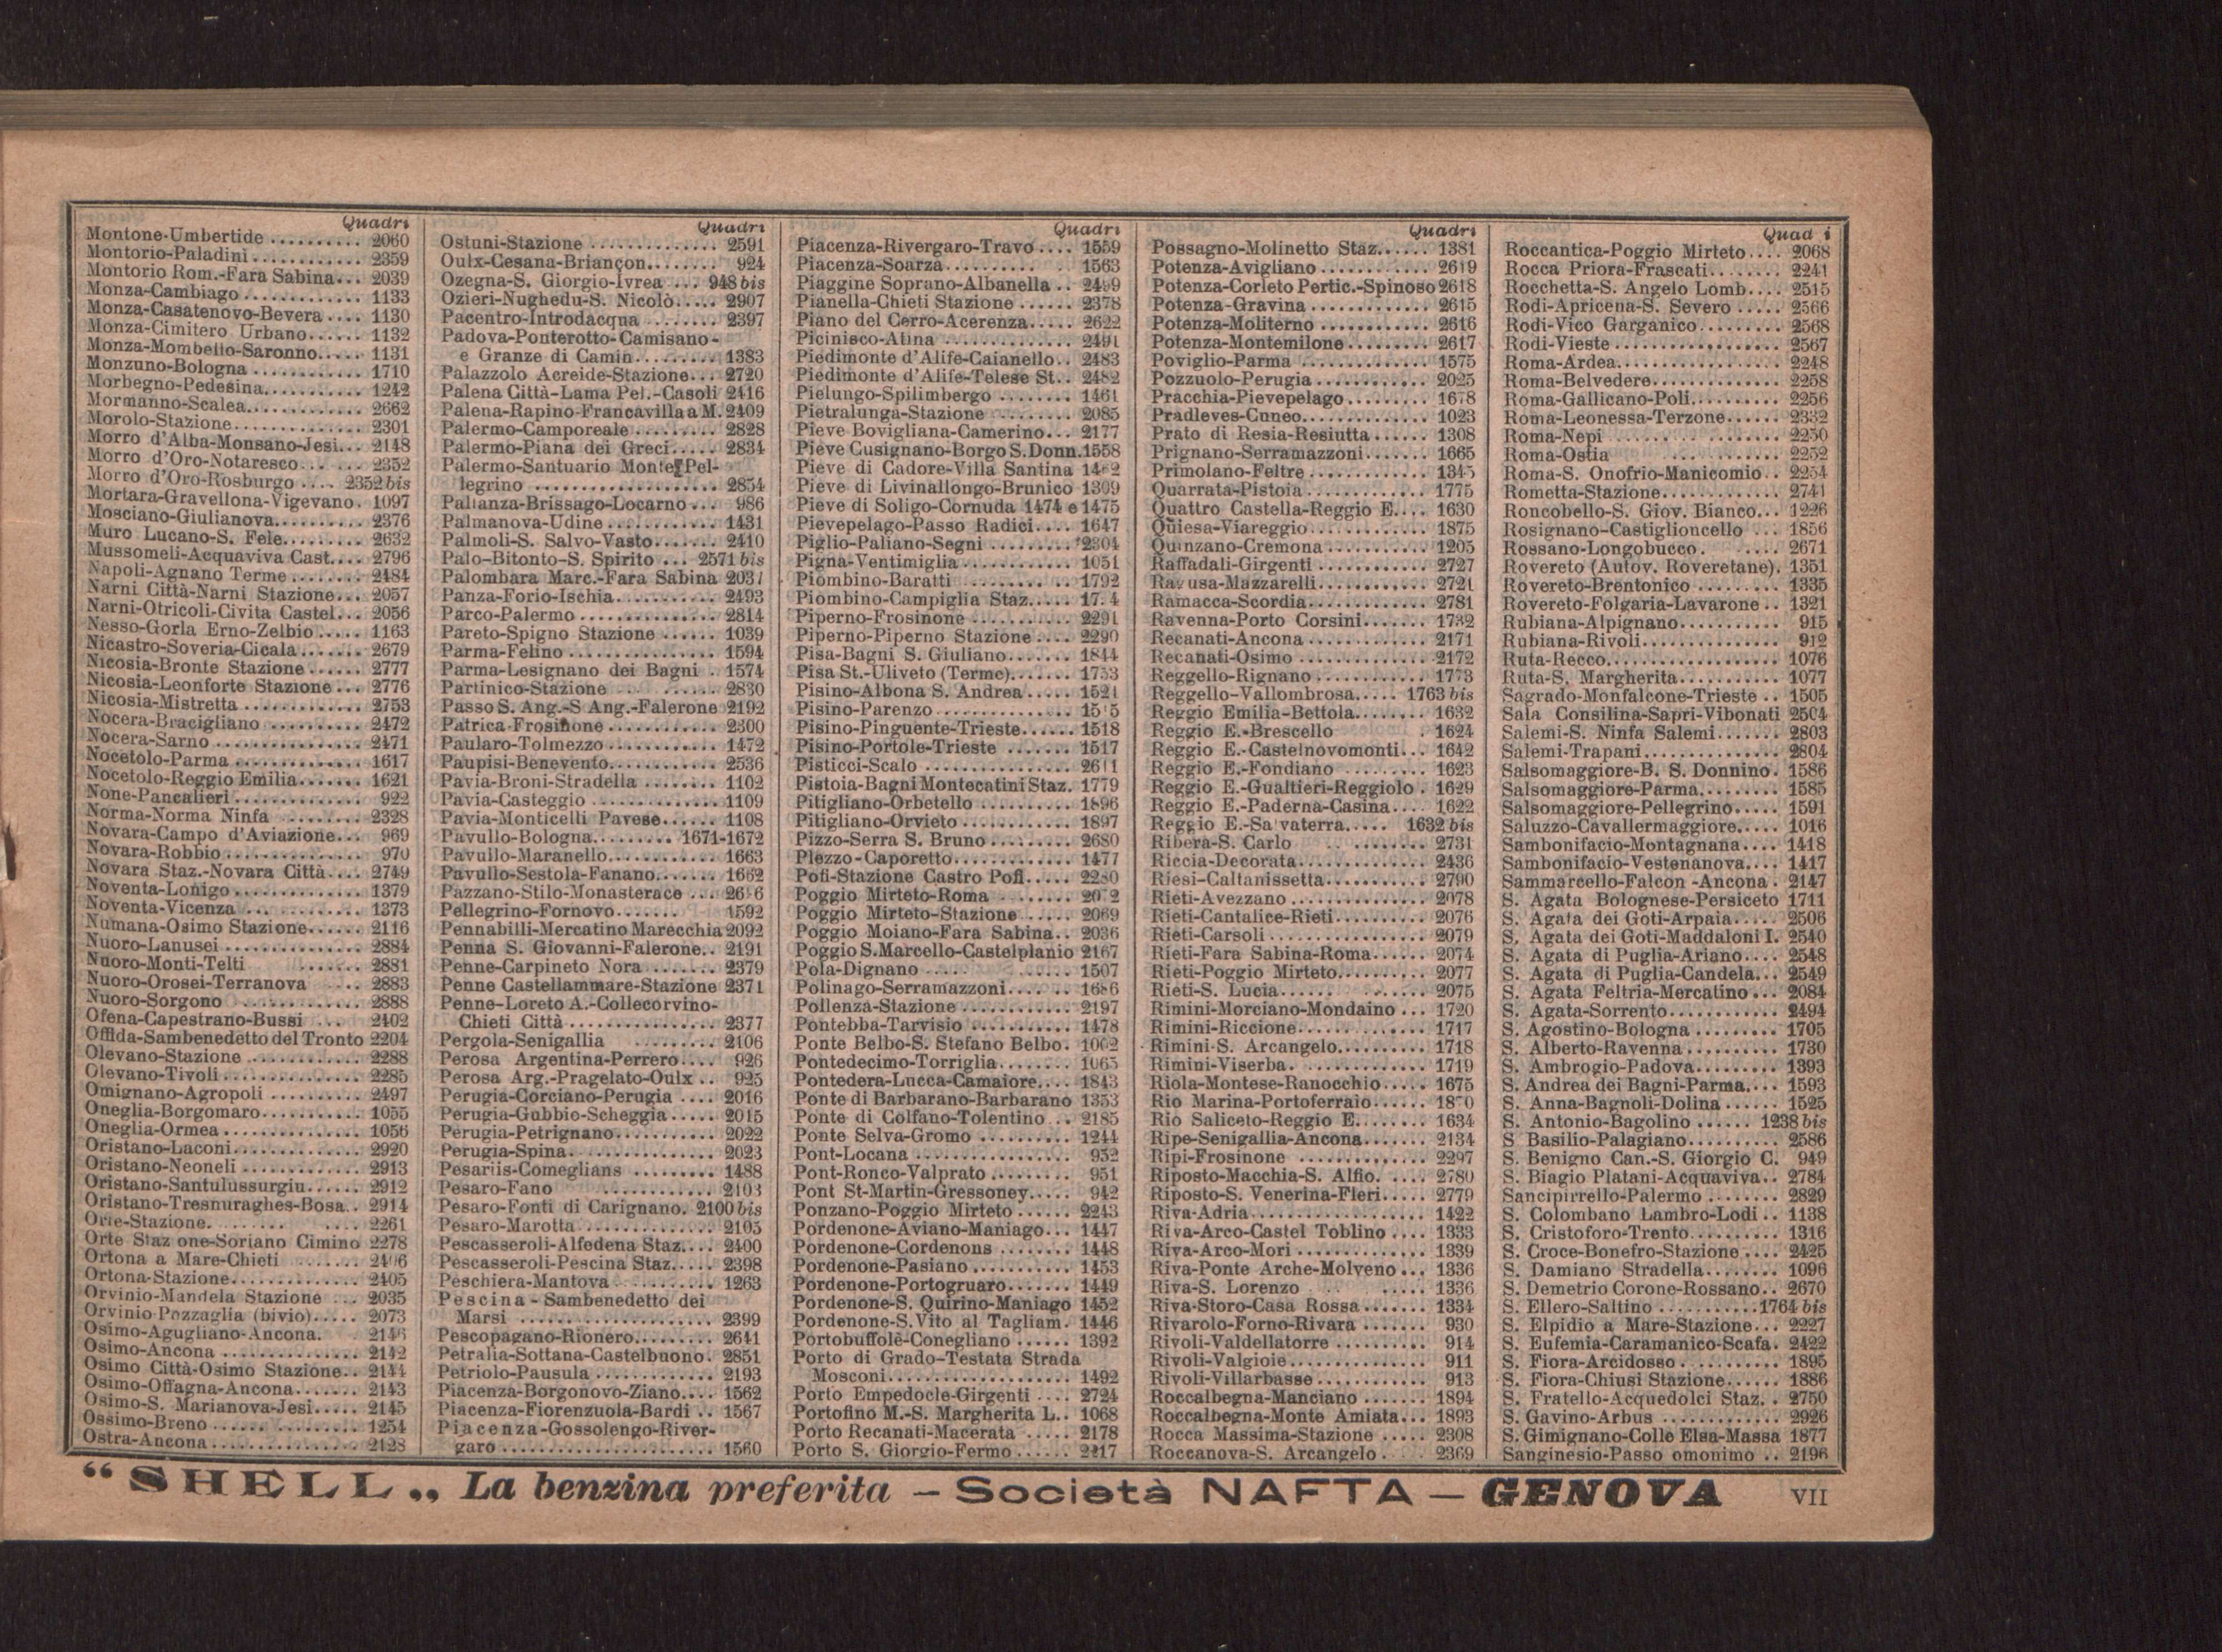 Quadri
Montone-Umbertide .......... 2060
Montorio-Paladini ............ 2359
Montorio Rom.-Fara Sabina... 2039
Monza-Cambiago ............. 1133
Monza-Casatenovo-Bevera .... 1130
Monza-Cimitero Urbano...... 1132
Monza-Mombello-Saronno..... 1131
Monzuno-Bologna ............ 1710
Morbegno-Pedesina........... 1242
Mormanno-Scalea............. 2662
Morolo-Stazione.............. 2301
Morro d'Alba-Monsano-Jesi... 2148
Morro d'Oro-Notaresco... ... 2352
Morro d'Oro-Rosburgo .... 2352 bis
Mortara-Gravellona-Vigevano. 1097
Mosciano-Giulianova.......... 2376
Muro Lucano-S. Fele......... 2632
Mussomeli-Acquaviva Cast.... 2796
Napoli-Agnano Terme ........ 2484
Narni Città-Narni Stazione... 2057
Narni-Otricoli-Civita Castel... 2056
Nesso-Gorla Erno-Zelbio ..... 1163
Nicastro-Soveria-Cicala....... 2679
Nicosia-Bronte Stazione ...... 2777
Nicosia-Leonforte Stazione ... 2776
Nicosia-Mistretta ............. 2753
Nocera-Bracigliano .......... 2472
Nocera-Sarno ................ 2471
Nocetolo-Parma .............. 1617
Nocetolo-Reggio Emilia....... 1621
None-Pancalieri .............. 922
Norma-Norma Ninfa ........ 2328
Novara-Campo d'Aviazione... 969
Novara-Robbio ............... 970
Novara Staz.-Novara Città.... 2749
Noventa-Lonigo.............. 1379
Noventa-Vicenza ... ......... 1373
Numana-Osimo Stazione...... 2116
Nuoro-Lanusei ............... 2884
Nuoro-Monti-Telti ....... 2881
Nuoro-Orosei-Terranova .... 2883
Nuoro-Sorgono ............. 2888
Ofena-Capestrano-Bussi ... 2402
Offida-Sambenedetto del Tronto 2204
Olevano-Stazione ............ 2288
Olevano-Tivoli ............... 2285
Omignano-Agropoli .......... 2497
Oneglia-Borgomaro........... 1055
Oneglia-Ormea ............... 1056
Oristano-Laconi.............. 2920
Oristano-Neoneli ............. 2913
Oristano-Santulussurgiu...... 2912
Oristano-Tresnuraghes-Bosa.. 2914
Orte-Stazione......... .... 2261
Orte Staz one-Soriano Cimino 2278
Ortona a Mare-Chieti .......
Ortona-Stazione.............. 2405
Orvinio-Mandela Stazione ... 2035
Orvinio-Pozzaglia (bivio)..... 2073
Osimo-Agugliano-Ancona.
Osimo-Ancona ............... 2142
Osimo Città-Osimo Stazione.. 2144
Osimo-Offagna-Ancona....... 2143
Osimo-S. Marianova-Jesi..... 2145
Ossimo-Breno ............... 1254
Ostra-Ancona................ 2128
Quadri
Ostuni-Stazione .............. 2591
Oulx-Cesana-Briançon........ 924
Ozegna-S. Giorgio-Ivrea ... 948 bis
Ozieri-Nughedu-S. Nicolò..... 2907
Pacentro-Introdacqua ........ 2397
Padova-Ponterotto-Camisano-
e Granze di Camin......... 1383
Palazzolo Acreide-Stazione... 2720
Palena Città-Lama Pel.-Casoli 2416
Palena-Rapino-Francavilla a M. 2409
Palermo-Camporeale ......... 2828
Palermo-Piana dei Greci..... 2834
Palermo-Santuario Monte Pel-
legrino ................... 2854
Pallanza-Brissago-Locarno ... 986
Palmanova-Udine ............ 1431
Palmoli-S. Salvo-Vasto....... 2410
Palo-Bitonto-S. Spirito ... 2571 bis
Palombara Marc.-Fara Sabina
Panza-Forio-Ischia........... 2493
Parco-Palermo ............... 2814
Pareto-Spigno Stazione ...... 1039
Parma-Felino ................ 1594
Parma-Lesignano dei Bagni . 1574
Partinico-Stazione ...... 2830
Passo S. Ang.-S Ang.-Falerone 2192
Patrica-Frosinone ........... 2300
Paularo-Tolmezzo ............ 1472
Paupisi-Benevento............ 2536
Pavia-Broni-Stradella ........ 1102
Pavia-Casteggio .............. 1109
Pavia-Monticelli Pavese...... 1108
Pavullo-Bologna......... 1671-1672
Pavullo-Maranello............ 1663
Pavullo-Sestola-Fanano....... 1662
Pazzano-Stilo-Monasterace ...
Pellegrino-Fornovo....... 1592
Pennabilli-Mercatino Marecchia 2092
Penna S. Giovanni-Falerone.. 2191
Penne-Carpineto Nora ....... 2379
Penne Castellammare-Stazione 2371
Penne-Loreto A.-Collecorvino-
Chieti Città ............... 2377
Pergola-Senigallia ......... 2106
Perosa Argentina-Perrero.... 926
Perosa Arg.-Pragelato-Oulx .. 925
Perugia-Corciano-Perugia .... 2016
Perugia-Gubbio-Scheggia ..... 2015
Perugia-Petrignano........... 2022
Perugia-Spina................ 2023
Pesariis-Comeglians ......... 1488
Pesaro-Fano ............ 2103
Pesaro-Fonti di Carignano. 2100 bis
Pesaro-Marotta .............. 2105
Pescasseroli-Alfedena Staz.... 2400
Pescasseroli-Pescina Staz..... 2398
Peschiera-Mantova ........... 1263
Pescina - Sambenedetto dei
Marsi ..................... 2399
Pescopagano-Rionero......... 2641
Petralia-Sottana-Castelbuono. 2851
Petriolo-Pausula ............. 2193
Piacenza-Borgonovo-Ziano.... 1562
Piacenza-Fiorenzuola-Bardi .. 1567
Piacenza-Gossolengo-River-
garo ....................... 1560
Quadri
Piacenza-Rivergaro-Travo.... 1559
Piacenza-Soarza.......... . 1563
Piaggine Soprano-Albanella ..
Pianella-Chieti Stazione ...... 2378
Piano del Cerro-Acerenza..... 2622
Picinisco-Atina .............. 2491
Piedimonte d'Alife-Caianello.. 2483
Piedimonte d'Alife-Telese St.. 2482
Pielungo-Spilimbergo ........ 1461
Pietralunga-Stazione ........ 2085
Pieve Bovigliana-Camerino... 2177
Pieve Cusignano-Borgo S. Donn. 1558
Pieve di Cadore-Villa Santina
Pieve di Livinallongo-Brunico 1309
Pieve di Soligo-Cornuda 1474 e 1475
Pievepelago-Passo Radici.... 1647
Piglio-Paliano-Segni ......... 2304
Pigna-Ventimiglia............ 1051
Piombino-Baratti ........ .. 1792
Piombino-Campiglia Staz.....
Piperno-Frosinone ........... 2291
Piperno-Piperno Stazione .... 2290
Pisa-Bagni S. Giuliano....... 1844
Pisa St.-Uliveto (Terme)...... 1753
Pisino-Albona S. Andrea ..... 1521
Pisino-Parenzo ..............
Pisino-Pinguente-Trieste...... 1518
Pisino-Portole-Trieste ....... 1517
Pisticci-Scalo ................ 2611
Pistoia-Bagni Montecatini Staz. 1779
Pitigliano-Orbetello .......... 1896
Pitigliano-Orvieto ............ 1897
Pizzo-Serra S. Bruno ......... 2680
Plezzo-Caporetto............. 1477
Pofi-Stazione Castro Pofi..... 2280
Poggio Mirteto-Roma ........
Poggio Mirteto-Stazione ..... 2069
Poggio Moiano-Fara Sabina.. 2036
Poggio S. Marcello-Castelplanio 2167
Pola-Dignano ..... ...... 1507
Polinago-Serramazzoni.... .. 1686
Pollenza-Stazione ............ 2197
Pontebba-Tarvisio ........... 1478
Ponte Belbo-S. Stefano Belbo. 1062
Pontedecimo-Torriglia........ 1065
Pontedera-Lucca-Camaiore.... 1843
Ponte di Barbarano-Barbarano 1353
Ponte di Colfano-Tolentino ... 2185
Ponte Selva-Gromo .......... 1244
Pont-Locana ................. 952
Pont-Ronco-Valprato ......... 951
Pont St-Martin-Gressoney..... 942
Ponzano-Poggio Mirteto ...... 2243
Pordenone-Aviano-Maniago... 1447
Pordenone-Cordenons ........ 1448
Pordenone-Pasiano ........... 1453
Pordenone-Portogruaro....... 1449
Pordenone-S. Quirino-Maniago 1452
Pordenone-S. Vito al Tagliam. 1446
Portobuffolè-Conegliano ...... 1392
Porto di Grado-Testata Strada
Mosconi................... 1492
Porto Empedocle-Girgenti .... 2724
Portofino M.-S. Margherita L.. 1068
Porto Recanati-Macerata ..... 2178
Porto S. Giorgio-Fermo ...... 2217
Quadri
Possagno-Molinetto Staz...... 1381
Potenza-Avigliano ............ 2619
Potenza-Corleto Pertic.-Spinoso 2618
Potenza-Gravina ............. 2615
Potenza-Moliterno ............ 2616
Potenza-Montemilone ......... 2617
Poviglio-Parma .............. 1575
Pozzuolo-Perugia ............ 2025
Pracchia-Pievepelago ........ 1678
Pradleves-Cuneo............. 1023
Prato di Resia-Resiutta ...... 1308
Prignano-Serramazzoni....... 1665
Primolano-Feltre ............. 1345
Quarrata-Pistoia ............. 1775
Quattro Castella-Reggio E.... 1630
Quiesa-Viareggio............. 1875
Quinzano-Cremona ........... 1205
Raffadali-Girgenti ............ 2727
Ragusa-Mazzarelli............ 2721
Ramacca-Scordia............. 2781
Ravenna-Porto Corsini....... 1732
Recanati-Ancona ............. 2171
Recanati-Osimo .............. 2172
Reggello-Rignano ............ 1773
Reggello-Vallombrosa..... 1763 bis
Reggio Emilia-Bettola........ 1632
Reggio E.-Brescello . 1624
Reggio E.-Castelnovomonti... 1642
Reggio E.-Fondiano ......... 1623
Reggio E.-Gualtieri-Reggiolo . 1629
Reggio E.-Paderna-Casina.... 1622
Reggio E.-Sa vaterra..... 1632 bis
Ribera-S. Carlo .......... 2731
Riccia-Decorata.............. 2436
Riesi-Caltanissetta........... 2790
Rieti-Avezzano .............. 2078
Rieti-Cantalice-Rieti.......... 2076
Rieti-Carsoli ................. 2079
Rieti-Fara Sabina-Roma...... 2074
Rieti-Poggio Mirteto.......... 2077
Rieti-S. Lucia...... ....... 2075
Rimini-Morciano-Mondaino ... 1720
Rimini-Riccione.............. 1717
Rimini-S. Arcangelo.......... 1718
Rimini-Viserba. ............. 1719
Riola-Montese-Ranocchio..... 1675
Rio Marina-Portoferraio......
Rio Saliceto-Reggio E........ 1634
Ripe-Senigallia-Ancona....... 2134
Ripi-Frosinone .............. 2297
Riposto-Macchia-S. Alfio. .... 2780
Riposto-S. Venerina-Fleri..... 2779
Riva-Adria................... 1422
Riva-Arco-Castel Toblino .... 1333
Riva-Arco-Mori .............. 1339
Riva-Ponte Arche-Molveno ... 1336
Riva-S. Lorenzo ..... 1336
Riva-Storo-Casa Rossa ....... 1334
Rivarolo-Forno-Rivara ....... 930
Rivoli-Valdellatorre .......... 914
Rivoli-Valgioie............... 911
Rivoli-Villarbasse ............ 913
Roccalbegna-Manciano ....... 1894
Roccalbegna-Monte Amiata... 1893
Rocca Massima-Stazione ..... 2308
Roccanova-S. Arcangelo..... 2369
Quad i
Roccantica-Poggio Mirteto.... 2068
Rocca Priora-Frascati........ 2241
Rocchetta-S. Angelo Lomb.... 2515
Rodi-Apricena-S. Severo ..... 2566
Rodi-Vico Garganico......... 2568
Rodi-Vieste .................. 2567
Roma-Ardea................. 2248
Roma-Belvedere.............. 2258
Roma-Gallicano-Poli.......... 2256
Roma-Leonessa-Terzone...... 2332
Roma-Nepi ................ 2250
Roma-Ostia .......... 2252
Roma-S. Onofrio-Manicomio.. 2254
Rometta-Stazione............. 2741
Roncobello-S. Giov. Bianco... 1226
Rosignano-Castiglioncello ... 1856
Rossano-Longobucco. ..... 2671
Rovereto (Autov. Roveretane). 1351
Rovereto-Brentonico ......... 1335
Rovereto-Folgaria-Lavarone .. 1321
Rubiana-Alpignano........... 915
Rubiana-Rivoli............... 912
Ruta-Recco.................. 1076
Ruta-S. Margherita........... 1077
Sagrado-Monfalcone-Trieste .. 1505
Sala Consilina-Sapri-Vibonati 2504
Salemi-S. Ninfa Salemi....... 2803
Salemi-Trapani............... 2804
Salsomaggiore-B. S. Donnino. 1586
Salsomaggiore-Parma......... 1585
Salsomaggiore-Pellegrino..... 1591
Saluzzo-Cavallermaggiore..... 1016
Sambonifacio-Montagnana.... 1418
Sambonifacio-Vestenanova.... 1417
Sammarcello-Falcon -Ancona . 2147
S. Agata Bolognese-Persiceto 1711
S. Agata dei Goti-Arpaia..... 2506
S. Agata dei Goti-Maddaloni I. 2540
S. Agata di Puglia-Ariano.... 2548
S. Agata di Puglia-Candela... 2549
S. Agata Feltria-Mercatino... 2084
S. Agata-Sorrento............ 2494
S. Agostino-Bologna ......... 1705
S. Alberto-Ravenna .......... 1730
S. Ambrogio-Padova......... 1393
S. Andrea dei Bagni-Parma.... 1593
S. Anna-Bagnoli-Dolina ...... 1525
S. Antonio-Bagolino ...... 1238 bis
S Basilio-Palagiano.......... 2586
S. Benigno Can.-S. Giorgio C. 949
S. Biagio Platani-Acquaviva.. 2784
Sancipirrello-Palermo ........ 2829
S. Colombano Lambro-Lodi .. 1138
S. Cristoforo-Trento.......... 1316
S. Croce-Bonefro-Stazione .... 2425
S. Damiano Stradella........ 1096
S. Demetrio Corone-Rossano.. 2670
S. Ellero-Saltino ...........1764 bis
S. Elpidio a Mare-Stazione... 2227
S. Eufemia-Caramanico-Scafa. 2422
S. Fiora-Arcidosso ........... 1895
S. Fiora-Chiusi Stazione...... 1886
S. Fratello-Acquedolci Staz. . 2750
S. Gavino-Arbus ............ 2926
S. Gimignano-Colle Elsa-Massa 1877
Sanginesio-Passo omonimo .. 2196
"SHELL„ La benzina preferita — Società NAFTA — GENOVA VII